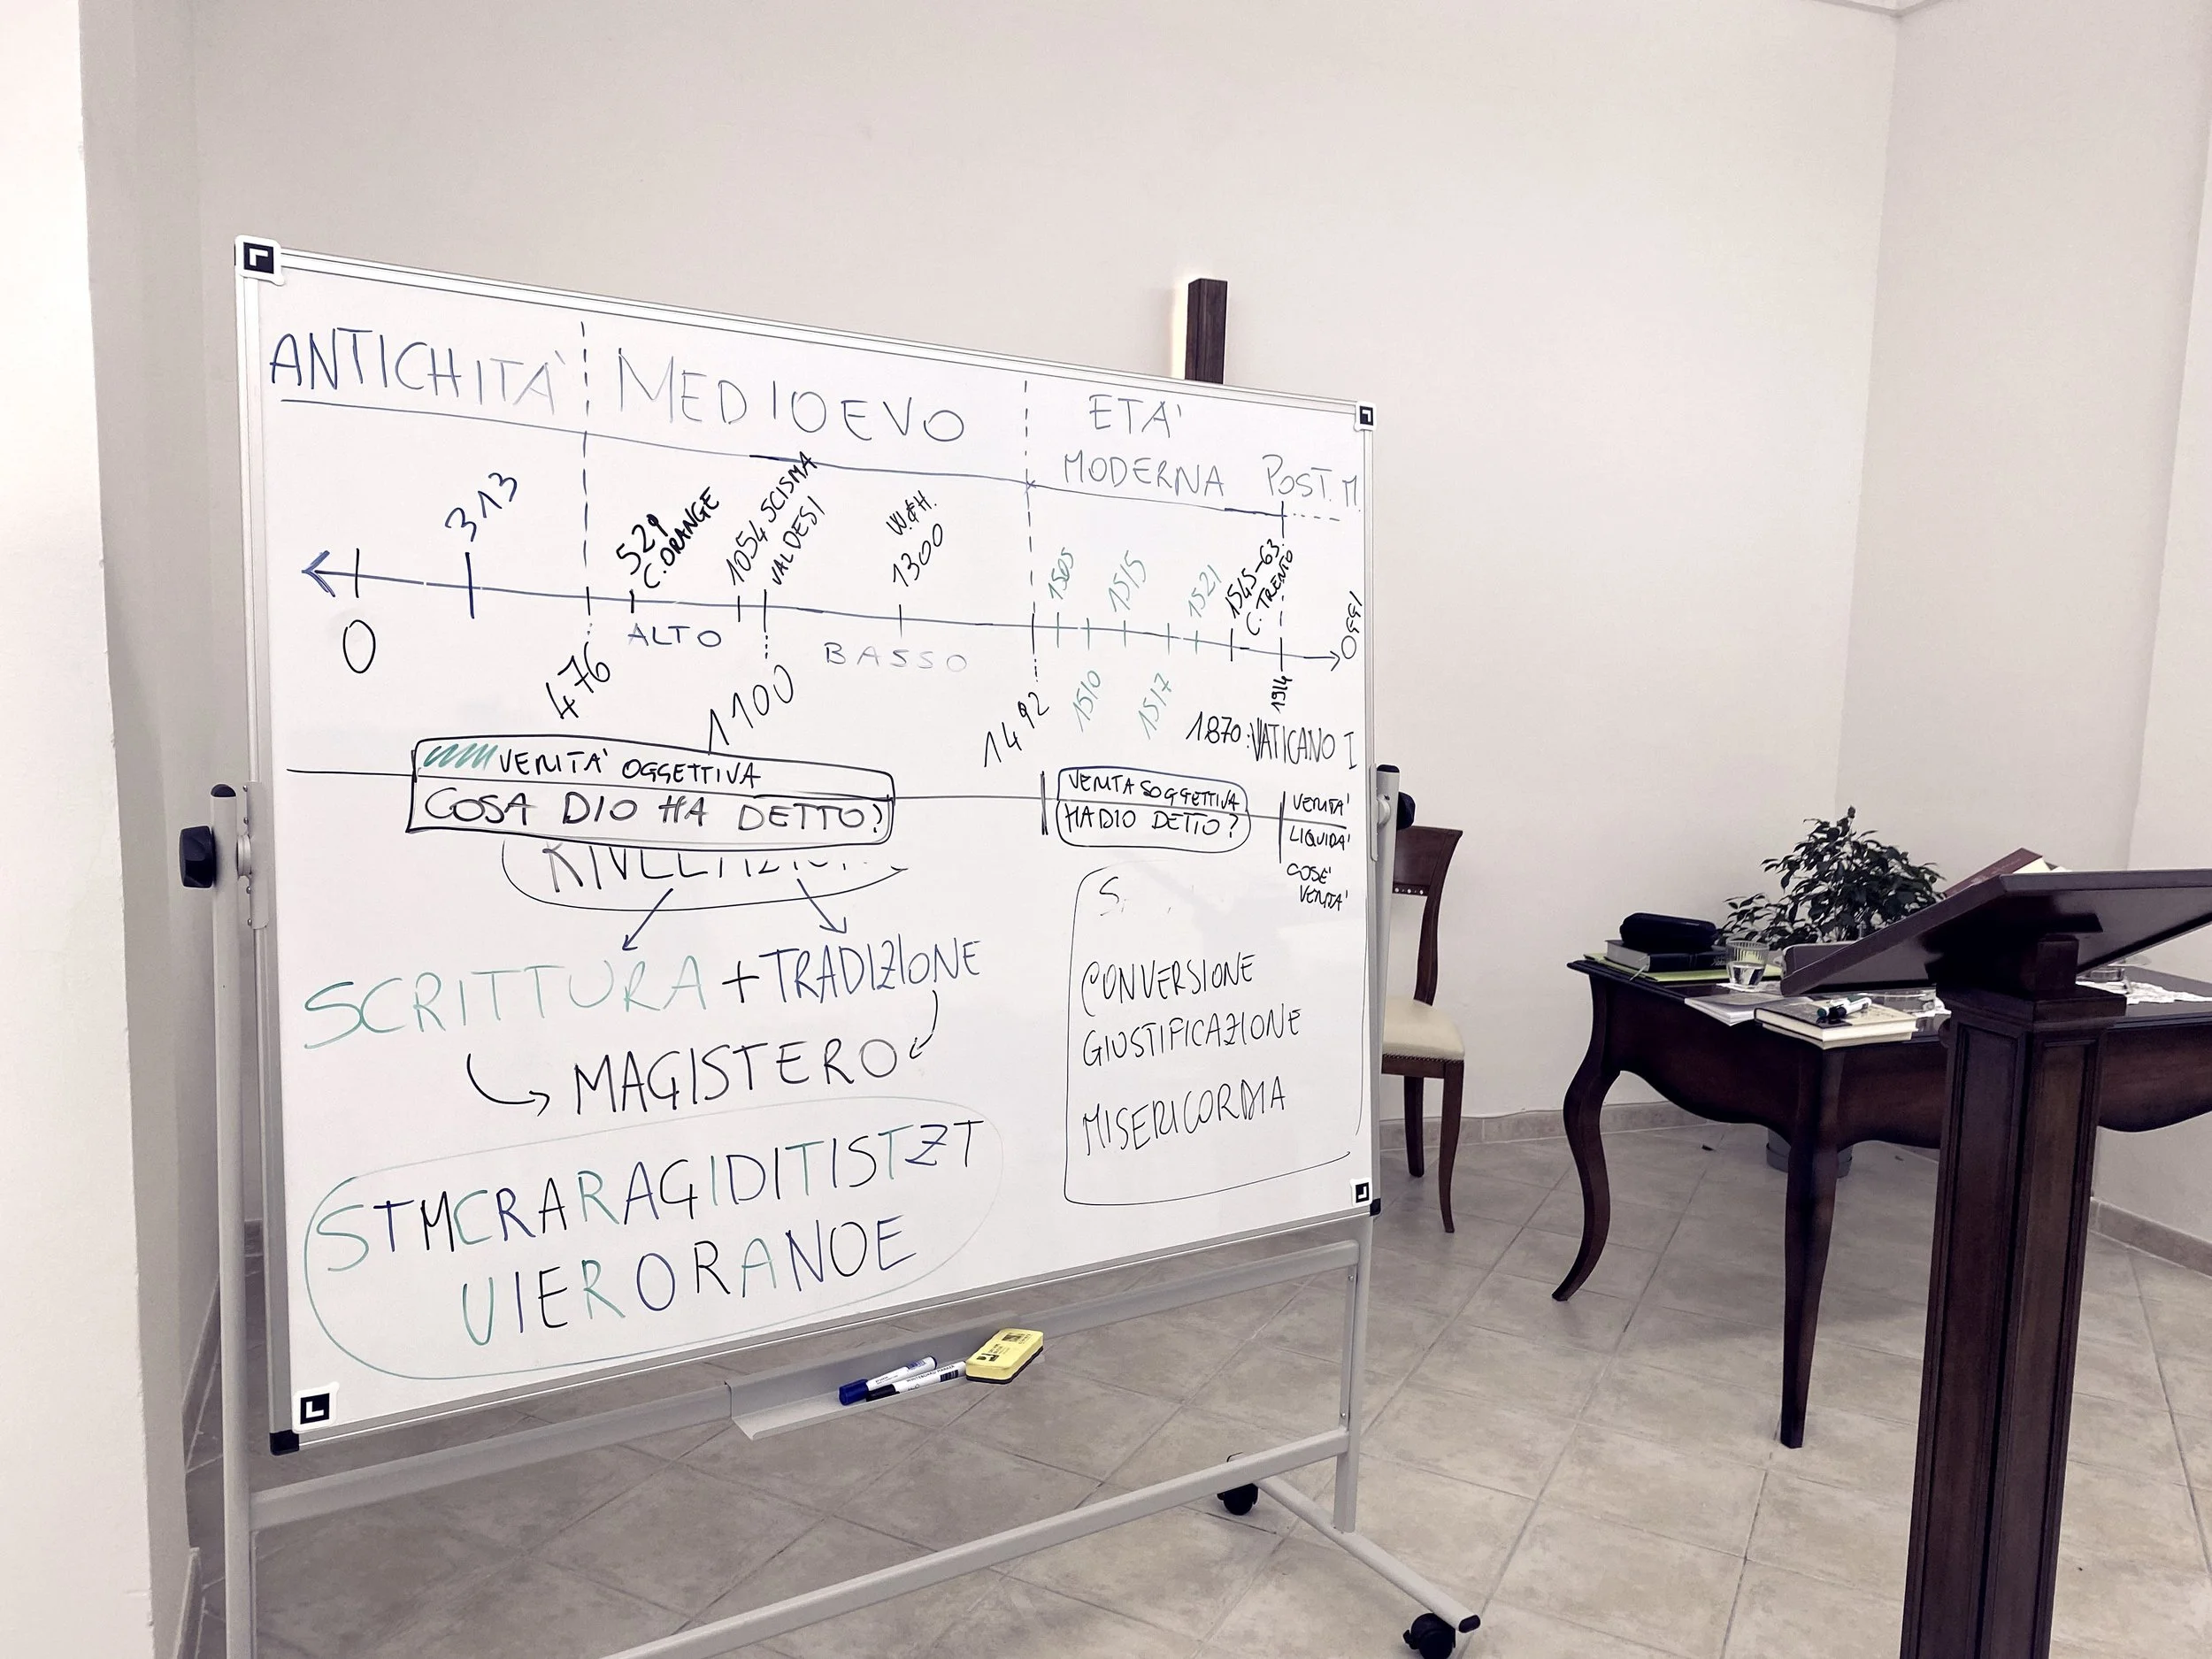 ANTICHITÀ MEDIOEVO ETA'
MODERNA POST. M.
313
529
C. ORANGE
1054 SCISMA
VALDESI
W.&H.
1300
1505
1515
1521
1545-63
C. TRENTO
OGGI
0
476
ALTO
1100
BASSO
1492
1510
1517
1914
1870: VATICANO I
VERITA' OGGETTIVA
COSA DIO HA DETTO?
VERITA SOGGETTIVA
HA DIO DETTO?
VERITA'
LIQUIDA'
COSE'
VERITA'
SCRITTURA + TRADIZIONE
MAGISTERO
STMCRARAGIDITISTZT
UIERORANOE
S.
CONVERSIONE
GIUSTIFICAZIONE
MISERICORDIA